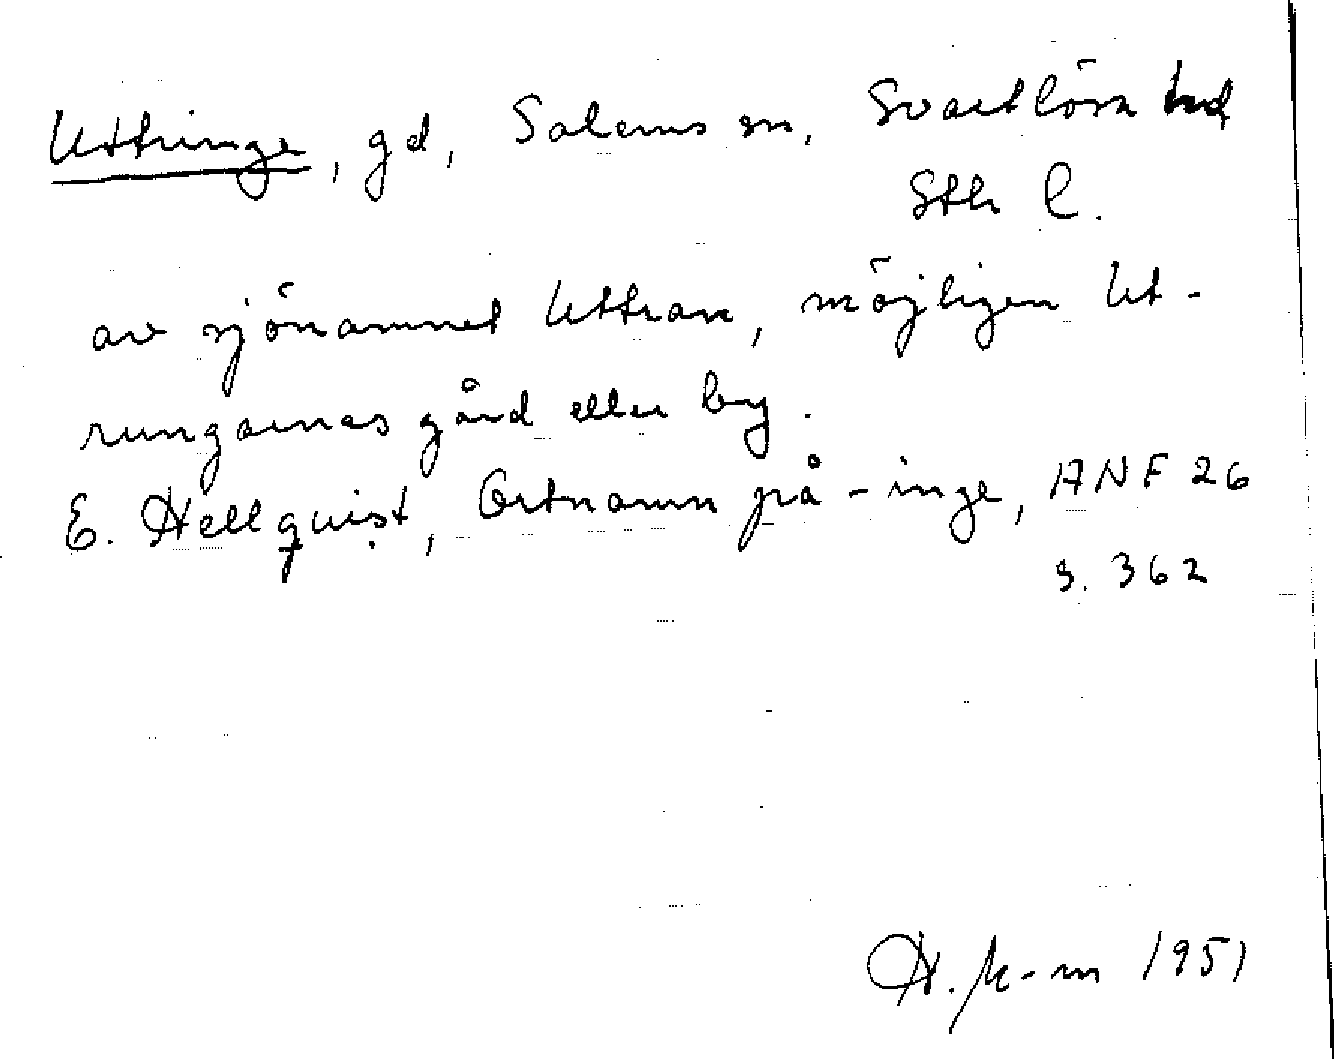 Uttringe, gd, Salems sn, Svartlösa hd
Sth l.
av sjönamnet Uttran, möjligen Ut-
rungarnas gård eller by.
E. Hellquist, Ortnamn på -inge, ANF 26
s. 362
1951